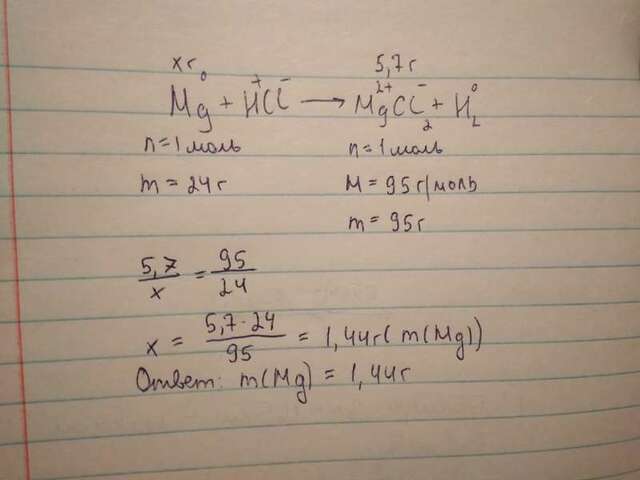 xг 5,7г
Mg⁰ + H⁺Cl⁻ → Mg²⁺Cl⁻₂ + H⁰₂
n = 1 моль n = 1 моль
m = 24 г M = 95 г/моль
m = 95 г
5,7/x = 95/24
x = 5,7·24/95 = 1,44г (m(Mg))
Ответ: m(Mg) = 1,44г